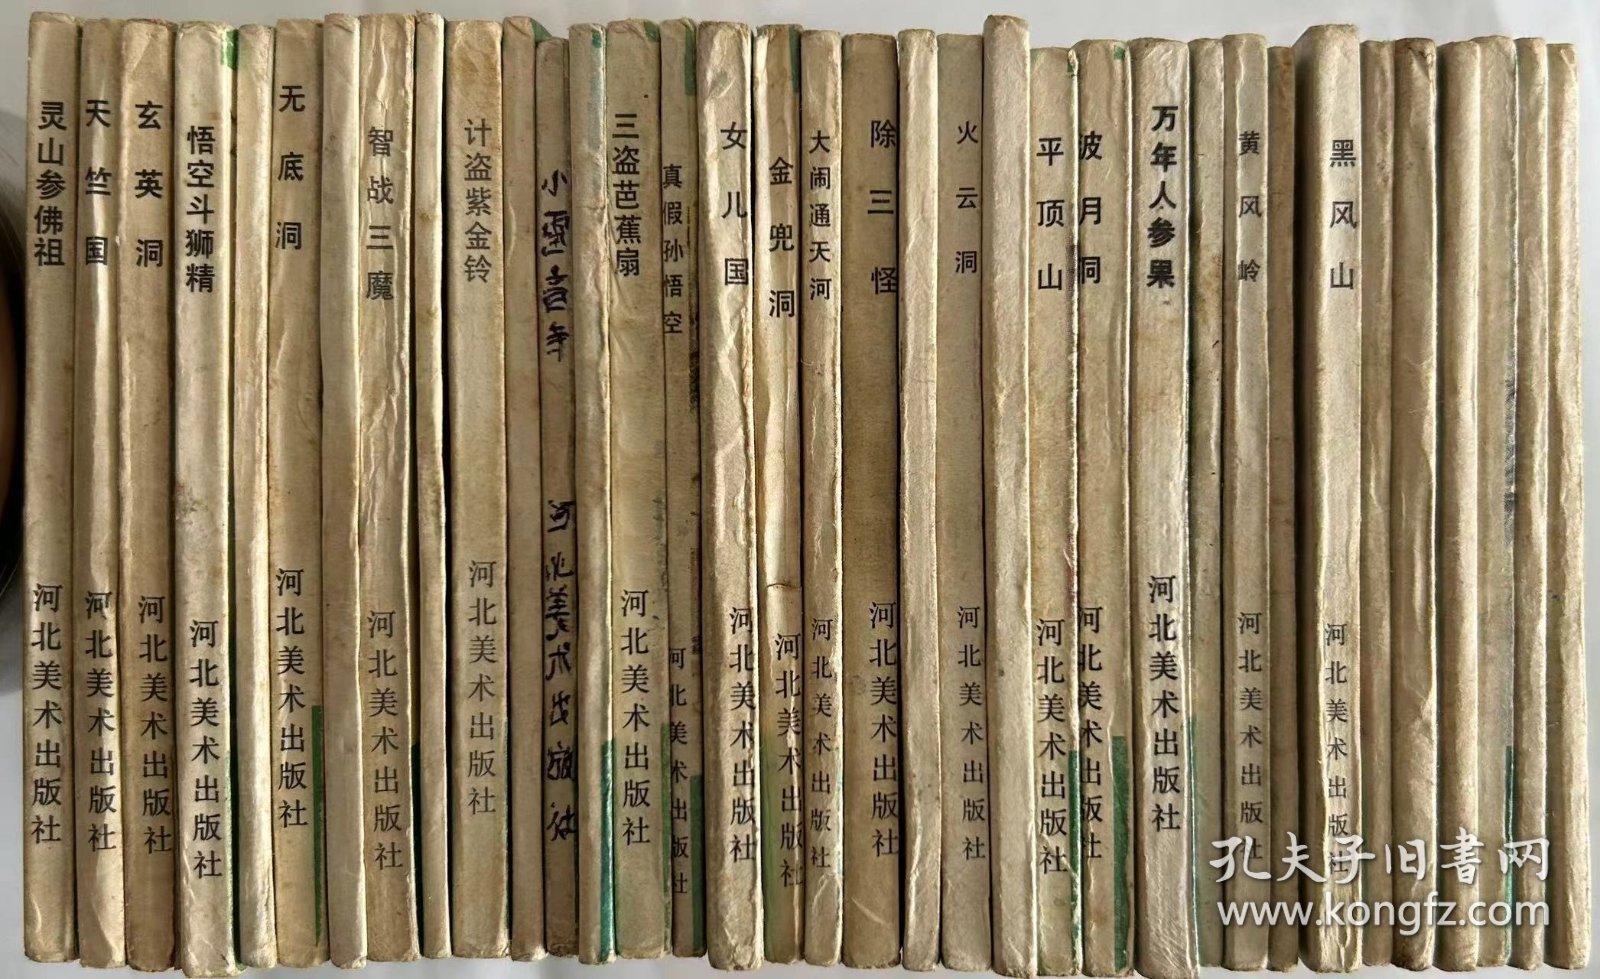 灵山参佛祖
河北美术出版社
天竺国
河北美术出版社
玄英洞
河北美术出版社
悟空斗狮精
河北美术出版社
无底洞
河北美术出版社
智战三魔
河北美术出版社
计盗紫金铃
河北美术出版社
小雷音寺
河北美术出版社
三盗芭蕉扇
河北美术出版社
真假孙悟空
河北美术出版社
女儿国
河北美术出版社
金兜洞
河北美术出版社
大闹通天河
河北美术出版社
除三怪
河北美术出版社
火云洞
河北美术出版社
平顶山
河北美术出版社
波月洞
河北美术出版社
万年人参果
河北美术出版社
黄风岭
河北美术出版社
黑风山
河北美术出版社
孔夫子旧書网
www.kongfz.com